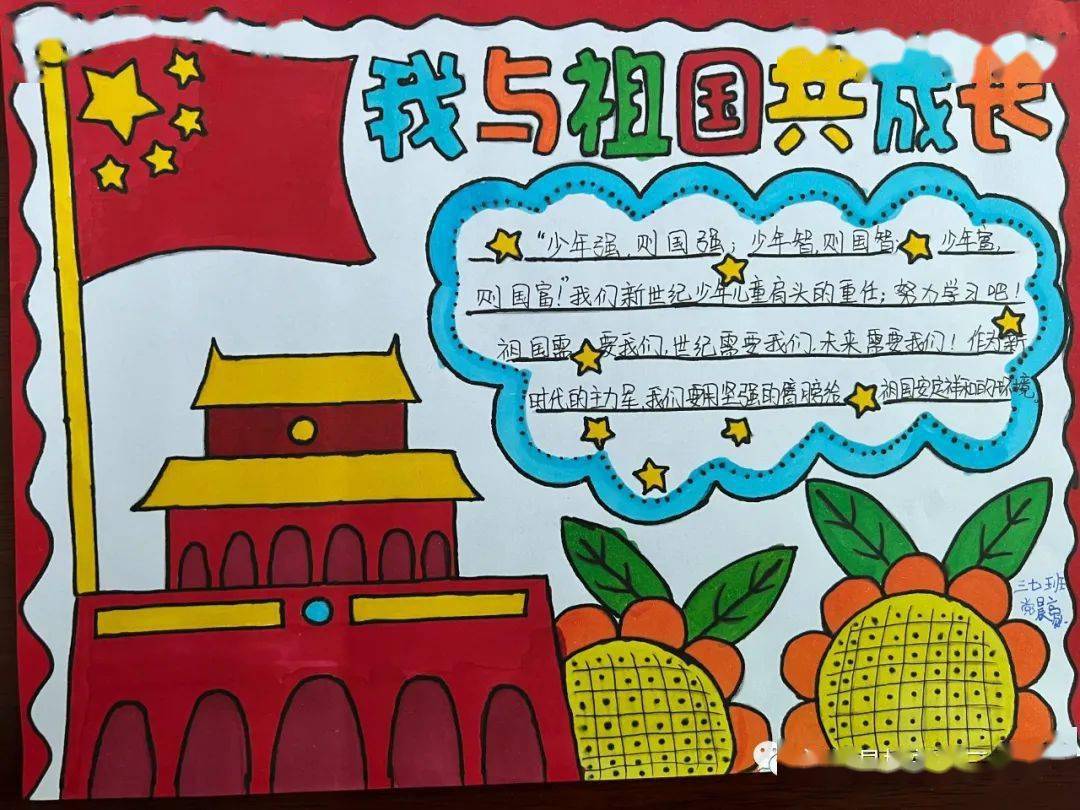 我与祖国共成长
“少年强,则国强;少年智,则国智;少年富,
则国富!”我们新世纪少年儿童肩头的重任;努力学习吧!
祖国需要我们,世纪需要我们,未来需要我们!作为新
时代的主力军,我们要用坚强的臂膀给祖国安定祥和的环境,
三七班